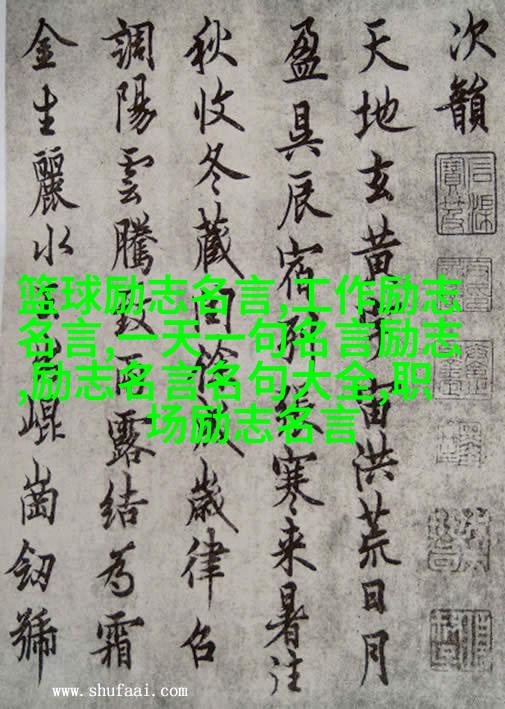 次韻
天地玄黃宙洪荒日月
盈昃辰宿張寒来暑往
秋收冬藏閏餘成歲律召
調陽雲騰致雨露結為霜
金生麗水玉出崐崗劒號
篮球励志名言,工作励志
名言,一天一句名言励志
,励志名言名句大全,职
场励志名言
www.shufaai.com